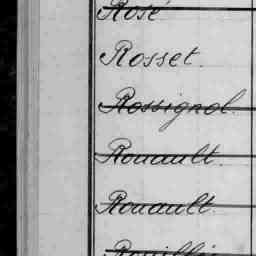 Rosé
Rosset.
Rossignol.
Rouault.
Rouault.